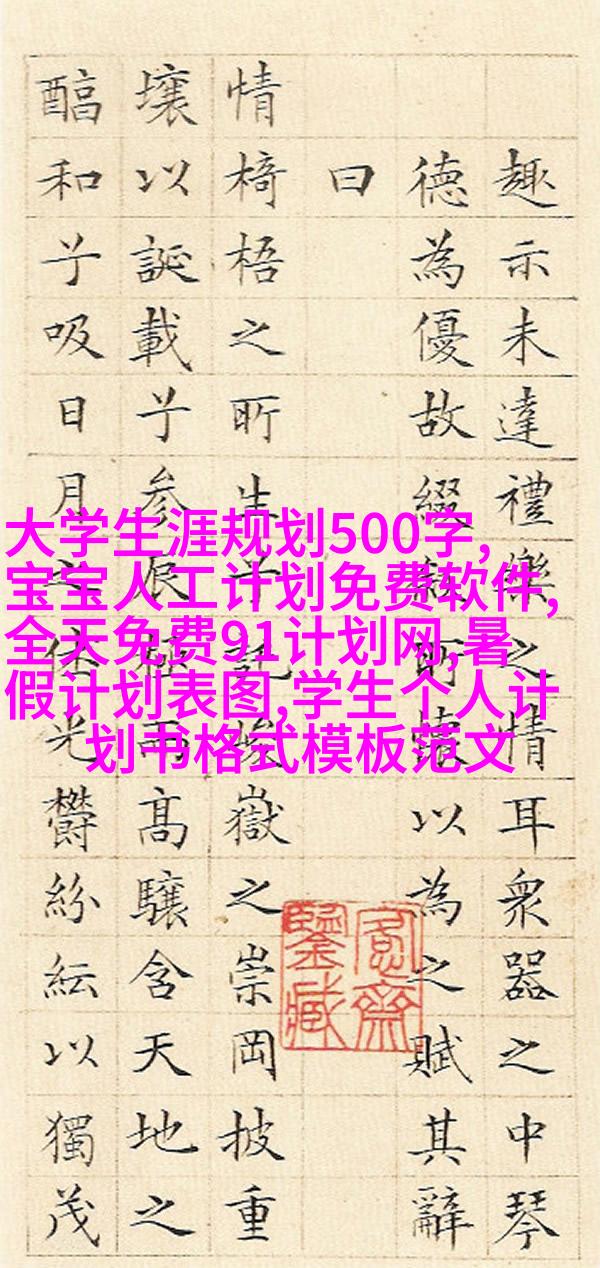 趣示未達禮樂之情耳衆器之中琴
德為優故綴叙所懷以為之賦其辭
曰
情椅梧之所生兮託峻嶽之崇岡披重
壤以誕載兮參辰極而高驤含天地之
醕和兮吸日月之休光鬱紛紜以獨茂
大学生涯规划500字,
宝宝人工计划免费软件,
全天免费91计划网,暑
假计划表图,学生个人计
划书格式模板范文
愙齋
鑒藏